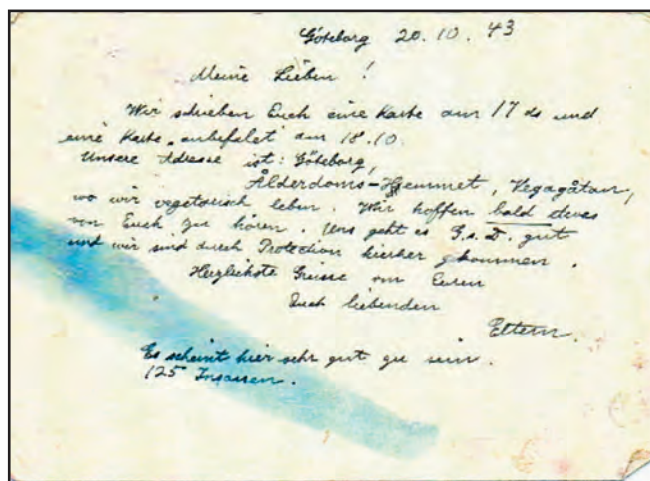 Göteborg 20.10.43
Meine Lieben!
Wir schrieben Euch eine Karte am 17 ds und
eine Karte am 18.10.
Unsere Adresse ist: Göteborg,
Ålderdoms-Hemmet, Vegagåtan,
wo wir vegetarisch leben. Wir hoffen bald etwas
von Euch zu hören. Uns geht es G.s.D. gut
und wir sind durch Protection hierher gekommen.
Herzlichste Grüsse von Euren
Euch liebenden
Eltern.
Es scheint hier sehr gut zu sein.
125 Insassen.